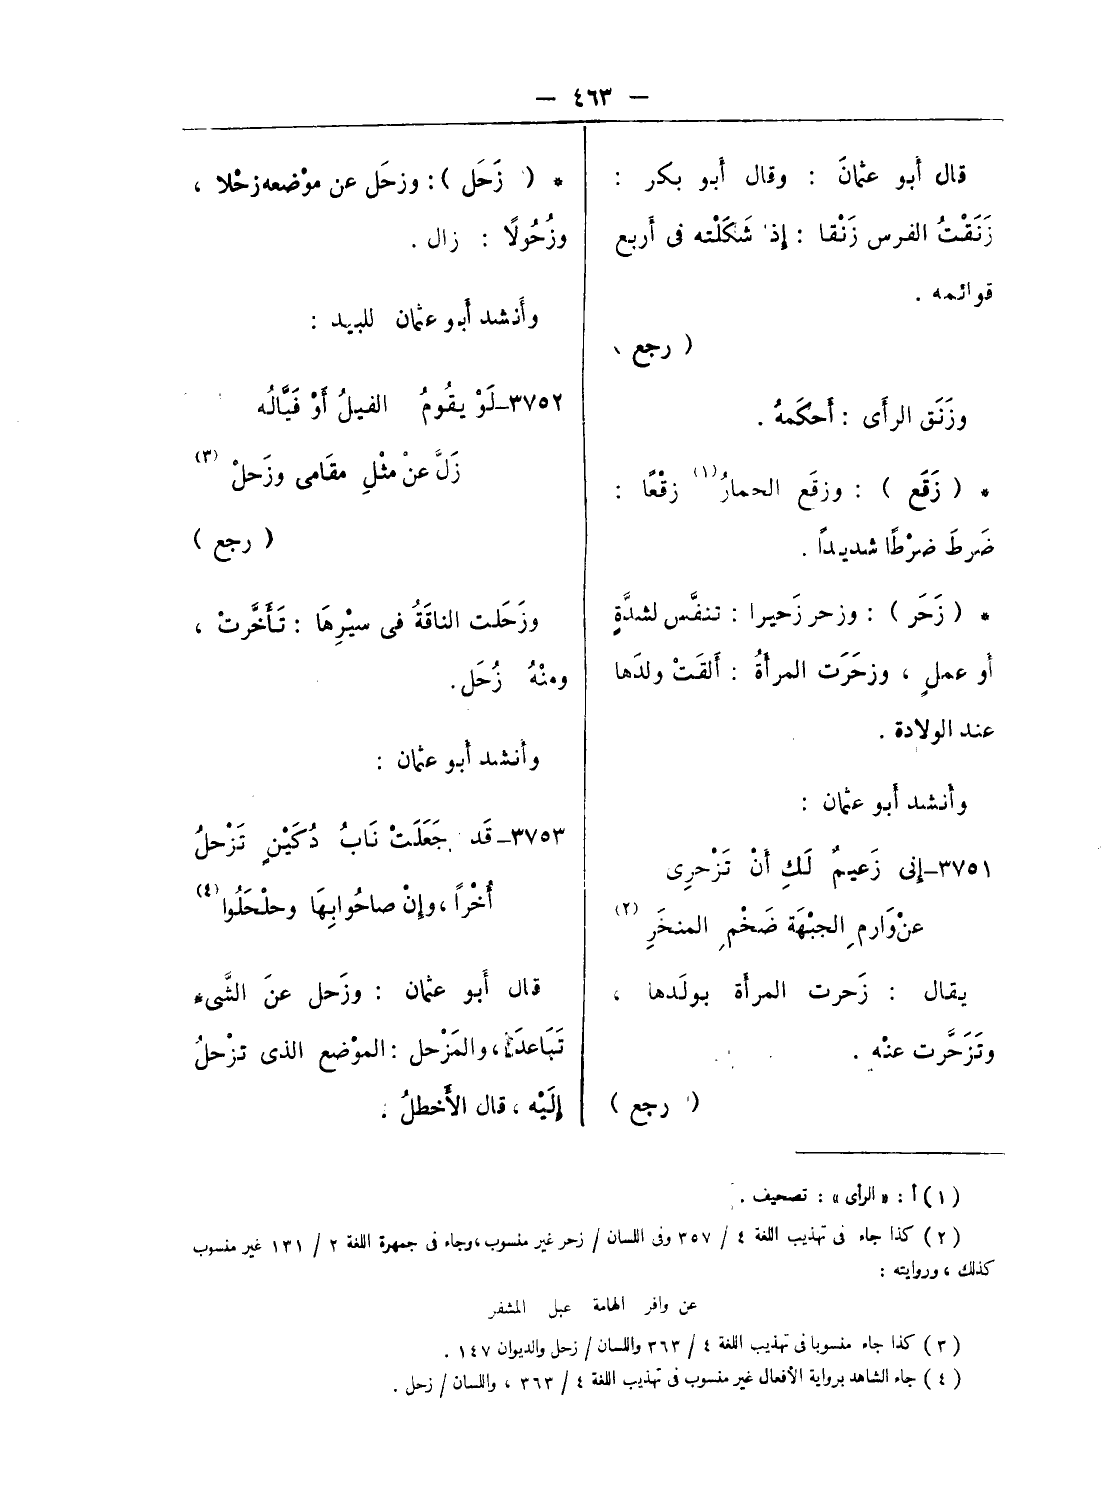 — ٤٦٣ —
قال أبو عثمانَ : وقال أبو بكر :
زَنَقْتُ الفرس زَنْقا : إذا شَكَلْته فى أربع
قوائمه .
( رجع )
وزَنَق الرأَى : أَحكَمهُ .
* ( زَقَع ) : وزقَع الحمارُ (١) زقْعًا :
ضَرطَ ضرْطًا شديداً .
* ( زَحَر ) : وزحر زَحيرا : تنفَّس لشدَّةٍ
أو عملٍ ، وزحَرَت المرأَةُ : أَلقَتْ ولدَها
عند الولادة .
وأَنشد أَبو عثمان :
٣٧٥١ـ إنى زَعيمٌ لَكِ أَنْ تَزْحرِى
عنْ وَارم الجبْهَة ضَخْم المنخَرِ (٢)
يقال : زَحرت المرأَة بولَدها ،
وتَزَحَّرت عنْه .
( رجع )
* ( زَحَل ) : وزحَل عن موْضعه زحْلا ،
وزُحُولًا : زال .
وأَنشد أَبو عثمان للبيد :
٣٧٥٢ـ لَوْ يقُومُ الفيلُ أَوْ فَيَّالُه
زَلَّ عنْ مثْلِ مقَامى وزَحلْ (٣)
( رجع )
وزَحَلت الناقَةُ فى سيْرِهَا : تَأَخَّرتْ ،
ومنْهُ زُحَل .
وأَنشد أَبو عثمان :
٣٧٥٣ـ قَد جَعَلَتْ نَابُ دُكَيْنٍ تَزْحلُ
أُخْراً ، وإنْ صاحُوا بِهَا وحلْحَلُوا (٤)
قال أَبو عثمان : وزَحل عنَ الشَّىء
تَبَاعدَ ، والمَزْحل : الموْضع الذى تزْحلُ
إلَيْه ، قال الأَخطلُ :
( ١ ) أ : « الرأى » : تصحيف .
( ٢ ) كذا جاء فى تهذيب اللغة ٤ / ٣٥٧ وفى اللسان / زحر غير منسوب ، وجاء فى جمهرة اللغة ٢ / ١٣١ غير منسوب
كذلك ، وروايته :
عن وافر الهامة عبل المشفر
( ٣ ) كذا جاء منسوبا فى تهذيب اللغة ٤ / ٣٦٣ واللسان / زحل والديوان ١٤٧ .
( ٤ ) جاء الشاهد برواية الأفعال غير منسوب فى تهذيب اللغة ٤ / ٣٦٣ ، واللسان / زحل .